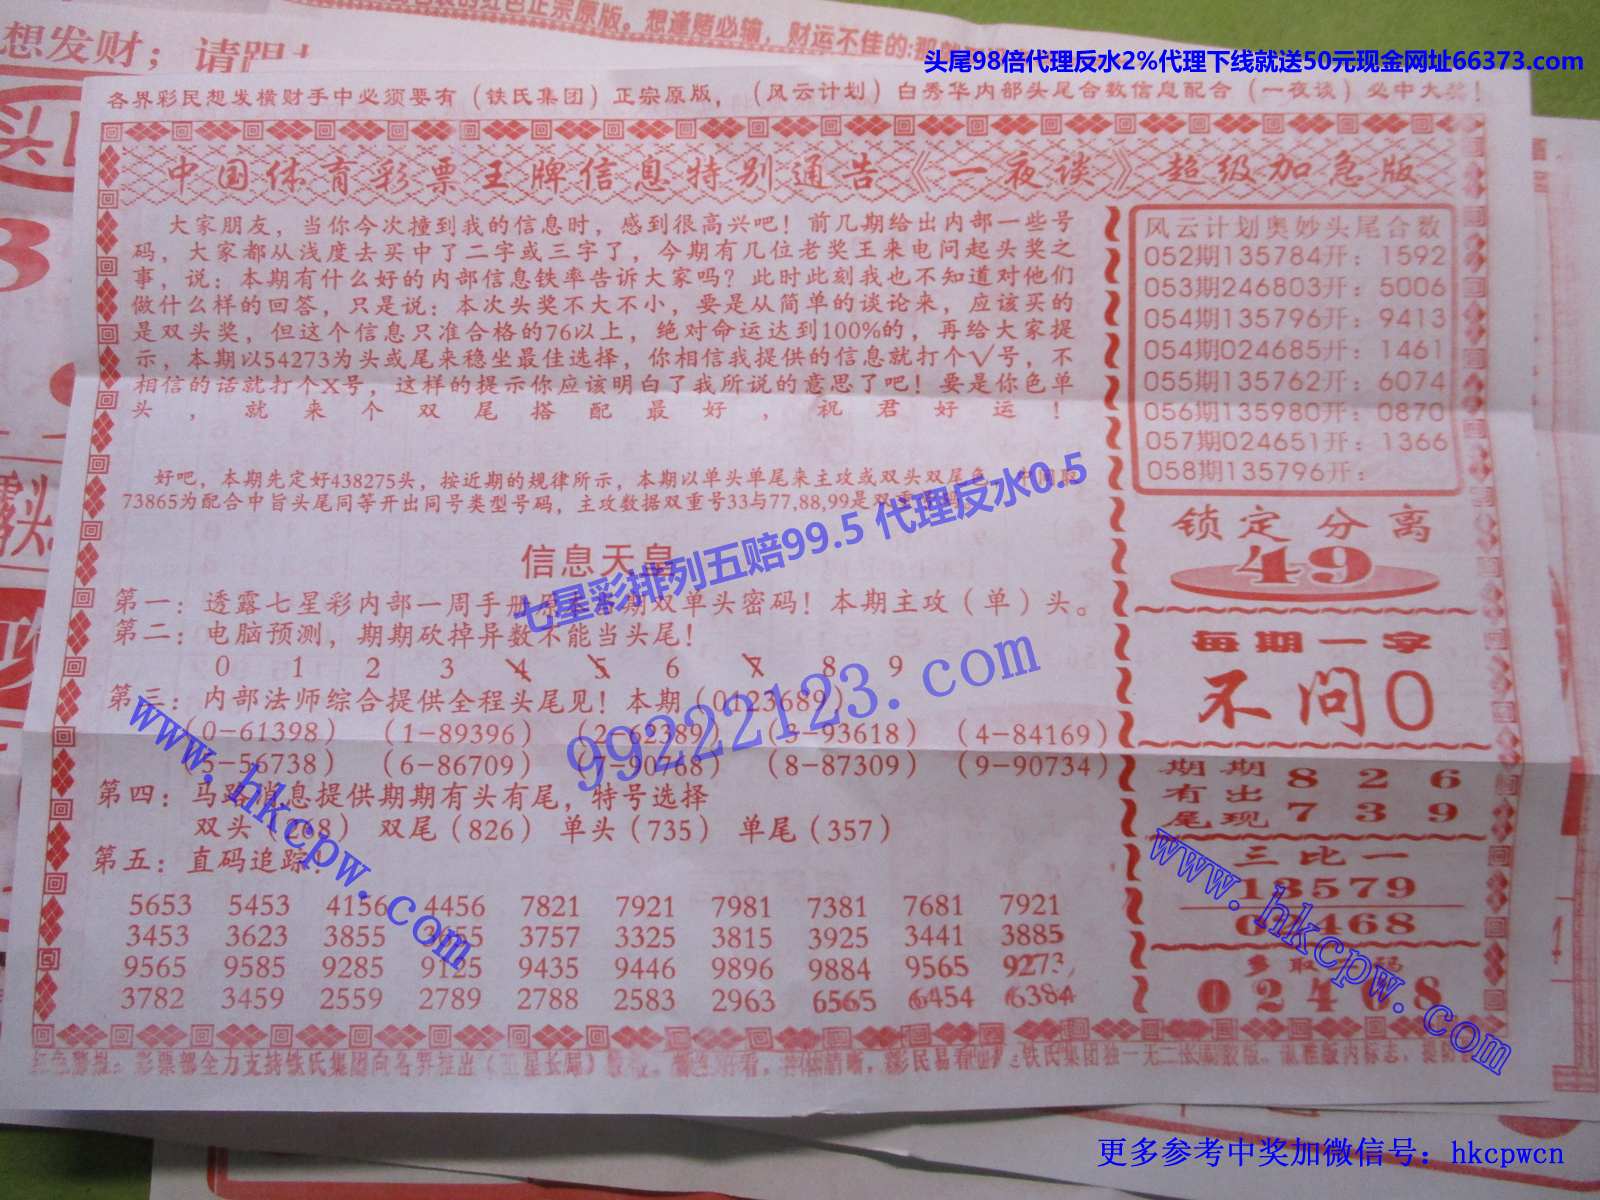 色正宗原版。想逢赌必输，财运不佳的:
想发财；请跟
头尾98倍代理反水2%代理下线就送50元现金网址66373.com
各界彩民想发横财手中必须要有（铁氏集团）正宗原版，（风云计划）白秀华内部头尾合数信息配合（一夜谈）必中大奖！
中国体育彩票王牌信息特别通告《一夜谈》超级加急版
大家朋友，当你今次撞到我的信息时，感到很高兴吧！前几期给出内部一些号
码，大家都从浅度去买中了二字或三字了，今期有几位老奖王来电问起头奖之
事，说：本期有什么好的内部信息铁率告诉大家吗？此时此刻我也不知道对他们
做什么样的回答，只是说：本次头奖不大不小，要是从简单的谈论来，应该买的
是双头奖，但这个信息只准合格的76以上，绝对命运达到100%的，再给大家提
示，本期以54273为头或尾来稳坐最佳选择，你相信我提供的信息就打个√号，不
相信的话就打个X号，这样的提示你应该明白了我所说的意思了吧！要是你色单
头，就来个双尾搭配最好，祝君好运！
好吧，本期先定好438275头，按近期的规律所示，本期以单头单尾来主攻或双头双尾色
73865为配合中旨头尾同等开出同号类型号码，主攻数据双重号33与77,88,99是双重
信息天皇
第一：透露七星彩内部一周手册原本本期双单头密码！本期主攻（单）头。
第二：电脑预测，期期砍掉异数不能当头尾！
0 1 2 3 4 5 6 7 8 9
第三：内部法师综合提供全程头尾见！本期（0123689）
（0-61398）（1-89396）（2-62389）（3-93618）（4-84169）
（5-56738）（6-86709）（7-90768）（8-87309）（9-90734）
第四：马路消息提供期期有头有尾，特号选择
双头（268） 双尾（826） 单头（735） 单尾（357）
第五：直码追踪：
5653 5453 4156 4456 7821 7921 7981 7381 7681 7921
3453 3623 3855 3455 3757 3325 3815 3925 3441 3885
9565 9585 9285 9125 9435 9446 9896 9884 9565 9273
3782 3459 2559 2789 2788 2583 2963 6565 6454 6384
风云计划奥妙头尾合数
052期135784开：1592
053期246803开：5006
054期135796开：9413
054期024685开：1461
055期135762开：6074
056期135980开：0870
057期024651开：1366
058期135796开：
锁定分离
49
每期一字
不问0
期期 8 2 6
有出
尾现 7 3 9
三比一
13579
02468
多取码
02468
七星彩排列五赔99.5 代理反水0.5
99222123.com
www.hkcpw.com
www.hkcpw.com
红色警报：彩票部全力支持铁氏集团向各界推出
更多参考中奖加微信号：hkcpwcn